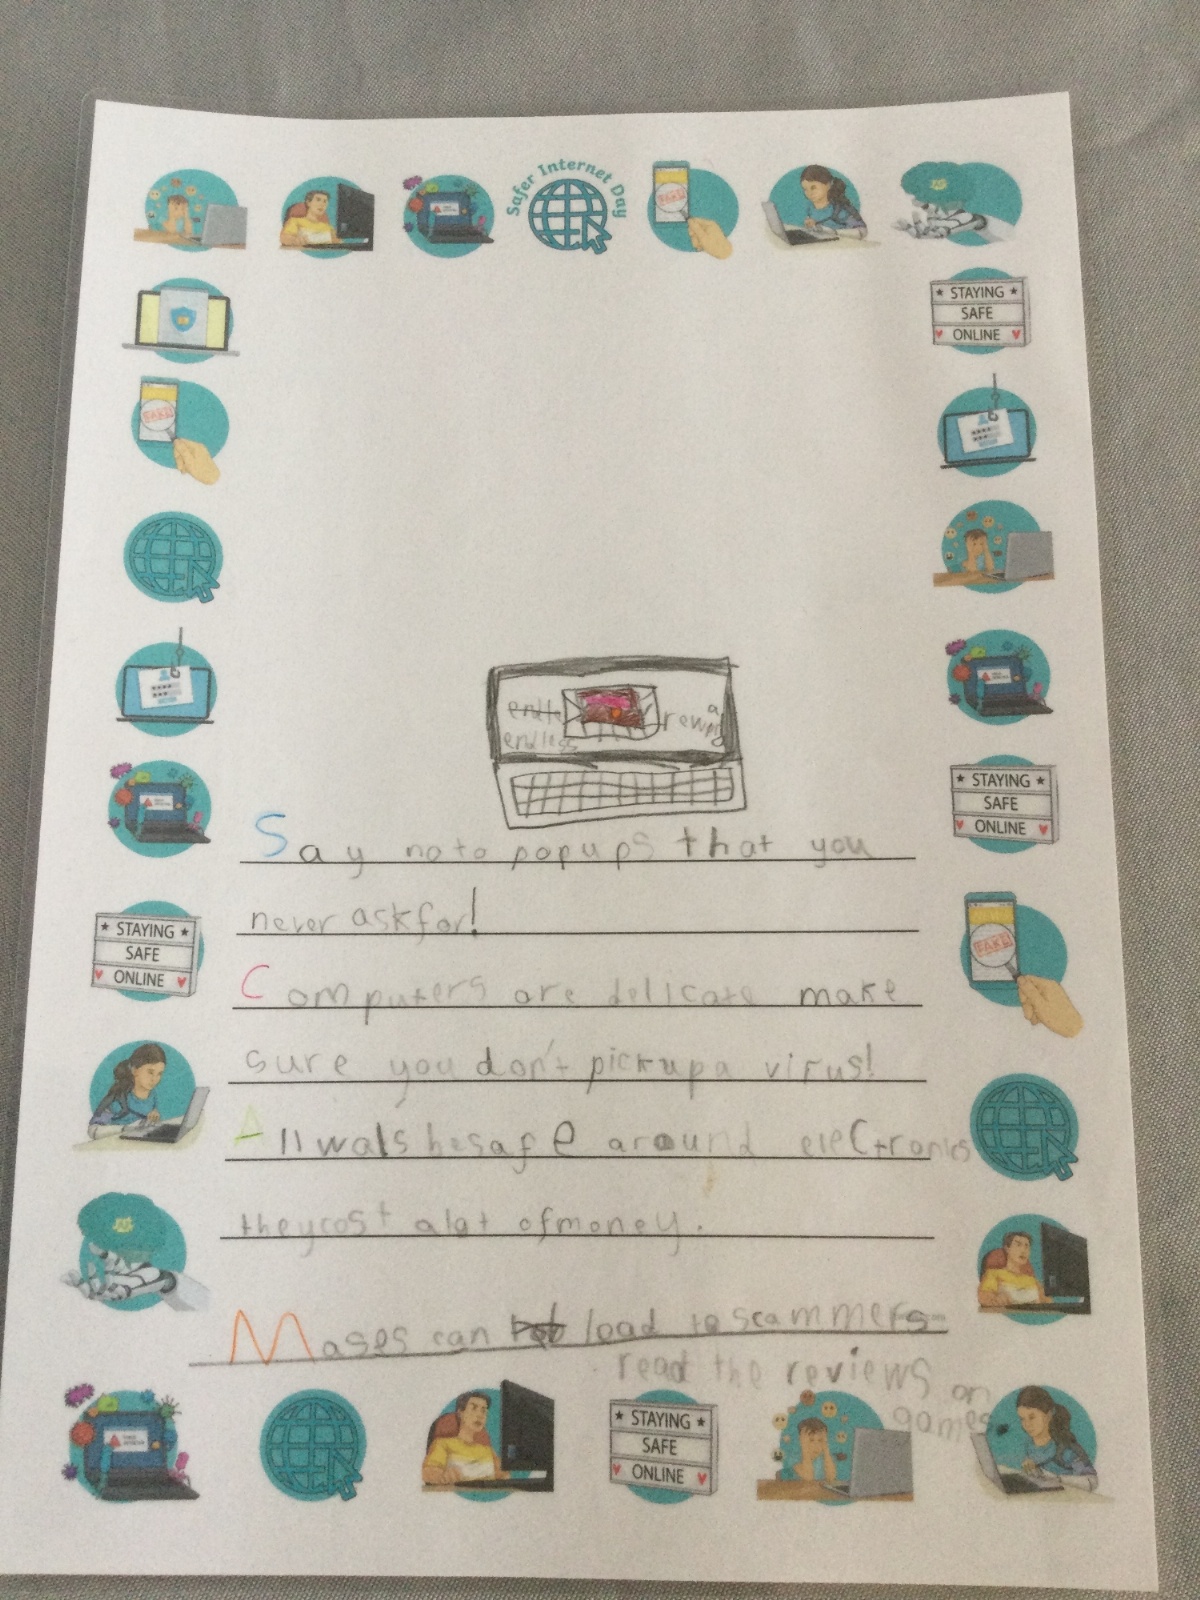 Safer Internet Day
FAKE
STAYING
SAFE
ONLINE
FAKE
endle
endless
reward
STAYING
SAFE
ONLINE
Say no to popups that you
never ask for!
STAYING
SAFE
ONLINE
FAKE
Computers are delicate make
sure you don't pick up a virus!
Allwals be safe around electronics
they cost a lat of money.
Mases can load to scammers
read the reviews on
games
STAYING
SAFE
ONLINE